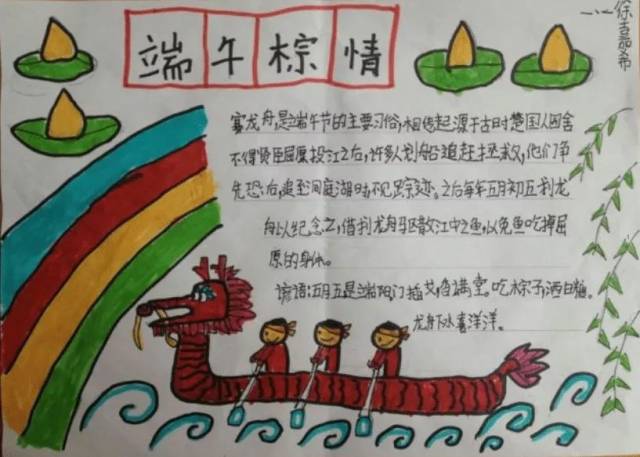 端午棕情
一.一徐嘉希
赛龙舟,是端午节的主要习俗,相传起源于古时楚国人因舍
不得贤臣屈原投江之后,许多人划船追赶拯救,他们争
先恐后,追至洞庭湖时不见踪迹。之后每年五月初五划龙
舟以纪念之,借划龙舟驱散江中之鱼,以免鱼吃掉屈
原的身体。
谚语:五月五是端阳门插艾,香满堂。吃棕子,洒白糖。
龙舟下水喜洋洋。